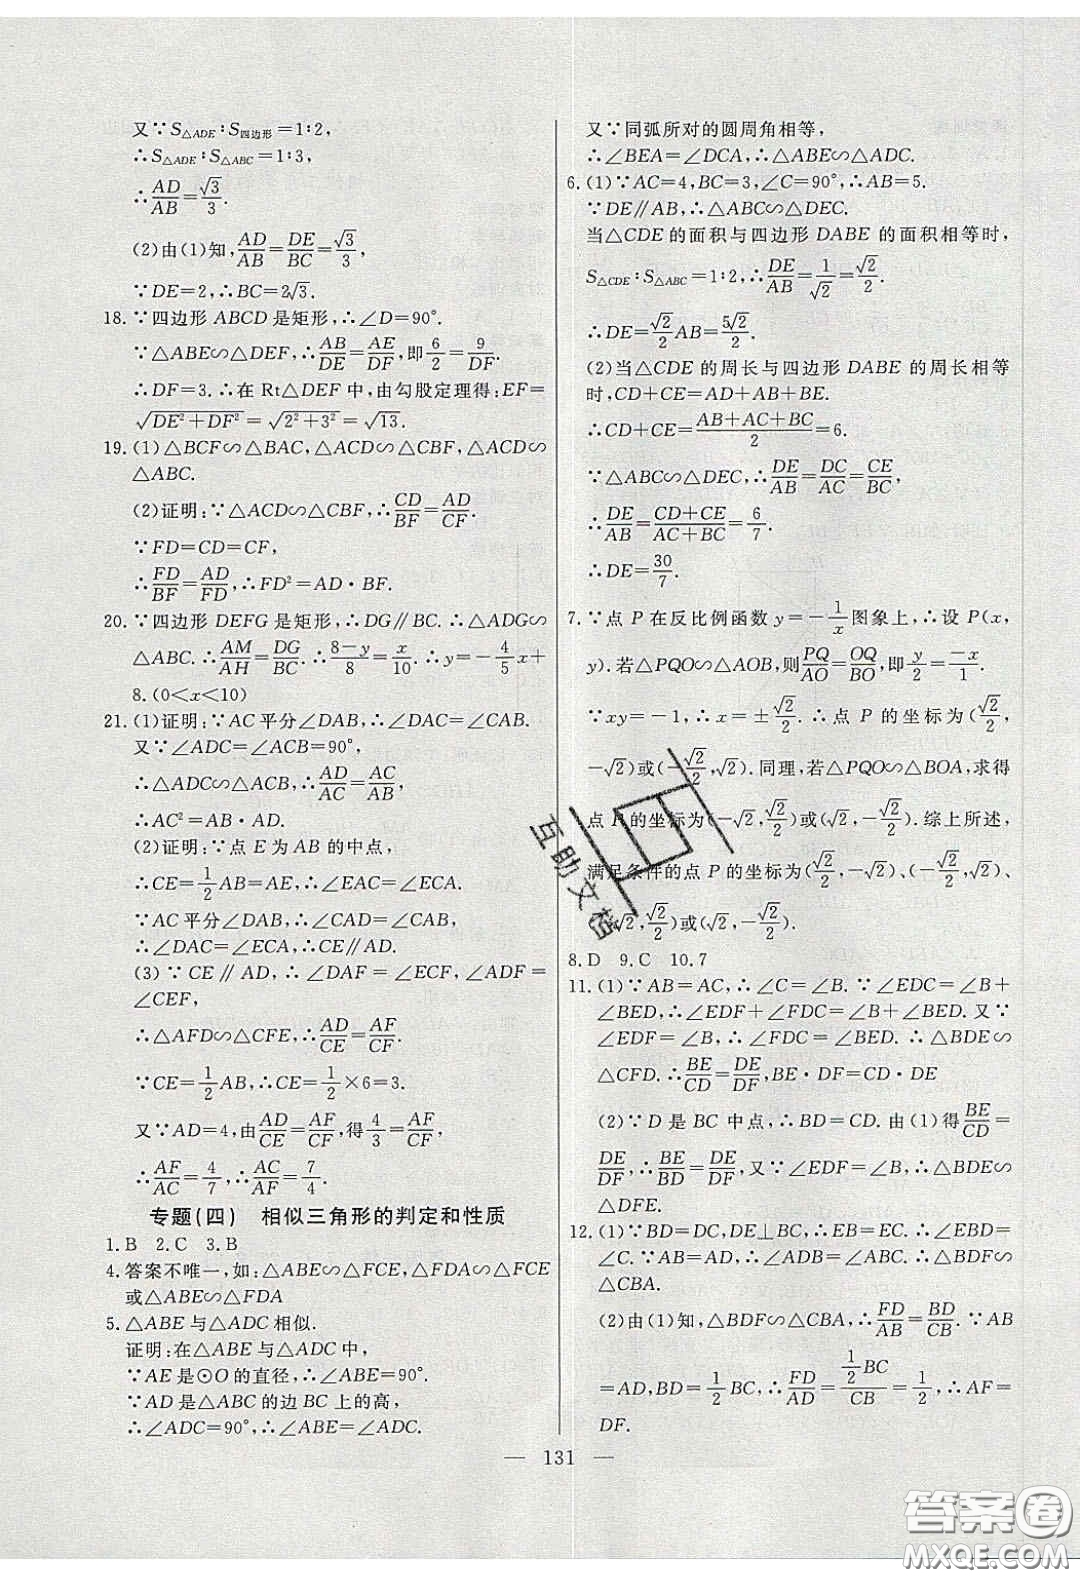 又∵S△ADE∶S四边形=1∶2,
∴S△ADE∶S△ABC=1∶3,
∴AD/AB=√3/3.
(2)由(1)知,AD/AB=DE/BC=√3/3,
∵DE=2,∴BC=2√3.
18.∵四边形 ABCD 是矩形,∴∠D=90°.
∵△ABE∽△DEF,∴AB/DE=AE/DF,即6/2=9/DF.
∴DF=3.∴在 Rt△DEF 中,由勾股定理得:EF=
√(DE²+DF²)=√(2²+3²)=√13.
19.(1)△BCF∽△BAC,△ACD∽△CBF,△ACD∽
△ABC.
(2)证明:∵△ACD∽△CBF,∴CD/BF=AD/CF.
∵FD=CD=CF,
∴FD/BF=AD/FD,∴FD²=AD·BF.
20.∵四边形 DEFG 是矩形,∴DG∥BC.∴△ADG∽
△ABC.∴AM/AH=DG/BC.∴(8-y)/8=x/10.∴y=-4/5x+
8.(0<x<10)
21.(1)证明:∵AC平分∠DAB,∴∠DAC=∠CAB.
又∵∠ADC=∠ACB=90°,
∴△ADC∽△ACB,∴AD/AC=AC/AB,
∴AC²=AB·AD.
(2)证明:∵点 E 为 AB 的中点,
∴CE=1/2AB=AE,∴∠EAC=∠ECA.
∵AC 平分∠DAB,∴∠CAD=∠CAB,
∴∠DAC=∠ECA,∴CE∥AD.
(3)∵CE∥AD,∴∠DAF=∠ECF,∠ADF=
∠CEF,
∴△AFD∽△CFE,∴AD/CE=AF/CF.
∵CE=1/2AB,∴CE=1/2×6=3.
又∵AD=4,由AD/CE=AF/CF,得4/3=AF/CF,
∴AF/AC=4/7,∴AC/AF=7/4.
专题(四) 相似三角形的判定和性质
1.B 2.C 3.B
4.答案不唯一,如:△ABE∽△FCE,△FDA∽△FCE
或△ABE∽△FDA
5.△ABE与△ADC相似.
证明:在△ABE 与△ADC 中,
∵AE是⊙O的直径,∴∠ABE=90°.
∵AD是△ABC的边BC上的高,
∴∠ADC=90°,∴∠ABE=∠ADC.
又∵同弧所对的圆周角相等,
∴∠BEA=∠DCA,∴△ABE∽△ADC.
6.(1)∵AC=4,BC=3,∠C=90°,∴AB=5.
∵DE∥AB,∴△ABC∽△DEC.
当△CDE的面积与四边形 DABE 的面积相等时,
S△CDE∶S△ABC=1∶2,∴DE/AB=1/√2=√2/2.
∴DE=√2/2AB=5√2/2.
(2)当△CDE 的周长与四边形 DABE 的周长相等
时,CD+CE=AD+AB+BE.
∴CD+CE=(AB+AC+BC)/2=6.
∵△ABC∽△DEC,∴DE/AB=DC/AC=CE/BC,
∴DE/AB=(CD+CE)/(AC+BC)=6/7.
∴DE=30/7.
7.∵点 P 在反比例函数 y=-1/x图象上,∴设 P(x,
y).若△PQO∽△AOB,则PQ/AO=OQ/BO,即y/2=-x/1.
∵xy=-1,∴x=±√2/2.∴点 P 的坐标为(√2/2,
-√2)或(-√2/2,√2).同理,若△PQO∽△BOA,求得
点 P的坐标为(-√2,√2/2)或(√2,-√2/2).综上所述,
满足条件的点 P的坐标为(√2/2,-√2)、(-√2/2,√2)、
(-√2,√2/2)或(√2,-√2/2).
8.D 9.C 10.7
11.(1)∵AB=AC,∴∠C=∠B.∵∠EDC=∠B+
∠BED,∴∠EDF+∠FDC=∠B+∠BED.又∵
∠EDF=∠B,∴∠FDC=∠BED.∴△BDE∽
△CFD.∴BE/CD=DE/DF,BE·DF=CD·DE
(2)∵D是 BC 中点,∴BD=CD.由(1)得BE/CD=
DE/DF,∴BE/BD=DE/DF,又∵∠EDF=∠B,∴△BDE∽
△DFE.
12.(1)∵BD=DC,DE⊥BC,∴EB=EC.∴∠EBD=
∠C.∵AB=AD,∴∠ADB=∠ABC.∴△BDF∽
△CBA.
(2)由(1)知,△BDF∽△CBA,∴FD/AB=BD/CB.∵AB
=AD,BD=1/2BC,∴FD/AD=(1/2BC)/CB=1/2,∴AF=
DF.
— 131 —
互助文档
答案圈
MXQE.COM